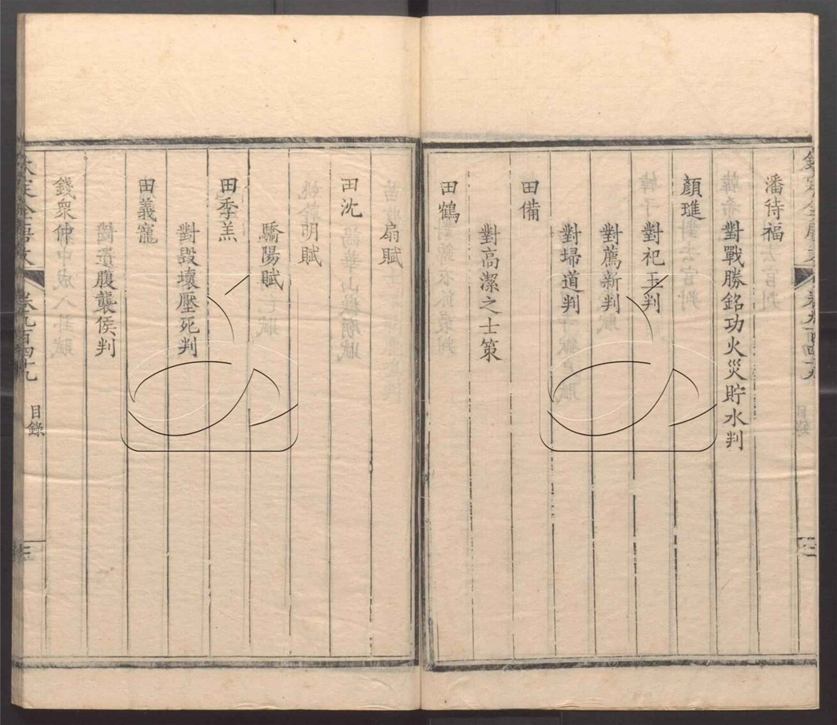 潘待福
對戰勝銘功火災貯水判
顏璡
對祀王判
對薦新判
對埽道判
田備
對高潔之士策
田鶴
扇賦
田沈
胡賦
驕陽賦
田季羔
對毀壞壓死判
田義寵
對遺腹襲侯判
錢眾仲
欽定全唐文
卷九百四十九
目錄